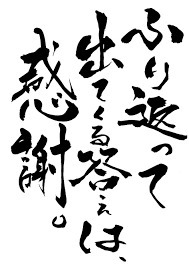 ふり返って
出てくる答えは、
感謝。